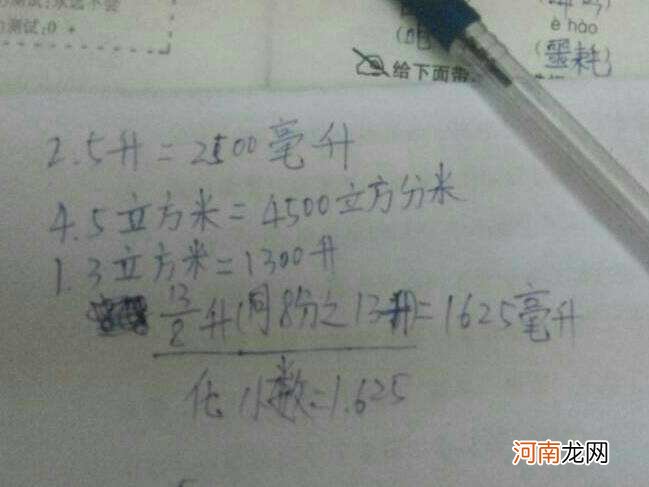 测试:0
è hào
(噩耗)
给下面带
2.5升=2500毫升
4.5立方米=4500立方分米
1.3立方米=1300升
13/8升(同8分之13升)=1625毫升
化小数=1.625
河南龙网